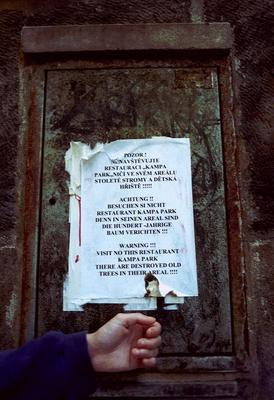 POZOR !
NENAVŠTĚVUJTE
RESTAURACI „KAMPA
PARK„NIČÍ VE SVÉM AREÁLU
STOLETÉ STROMY A DĚTSKÁ
HŘIŠTĚ !!!!!
ACHTUNG !!
BESUCHEN SI NICHT
RESTAURANT KAMPA PARK
DENN IN SEINEN AREAL SIND
DIE HUNDERT -JAHRIGE
BAUM VERICHTEN !!!
WARNING !!!
VISIT NO THIS RESTAURANT
KAMPA PARK
THERE ARE DESTROYED OLD
TREES IN THEIR AREAL !!!!